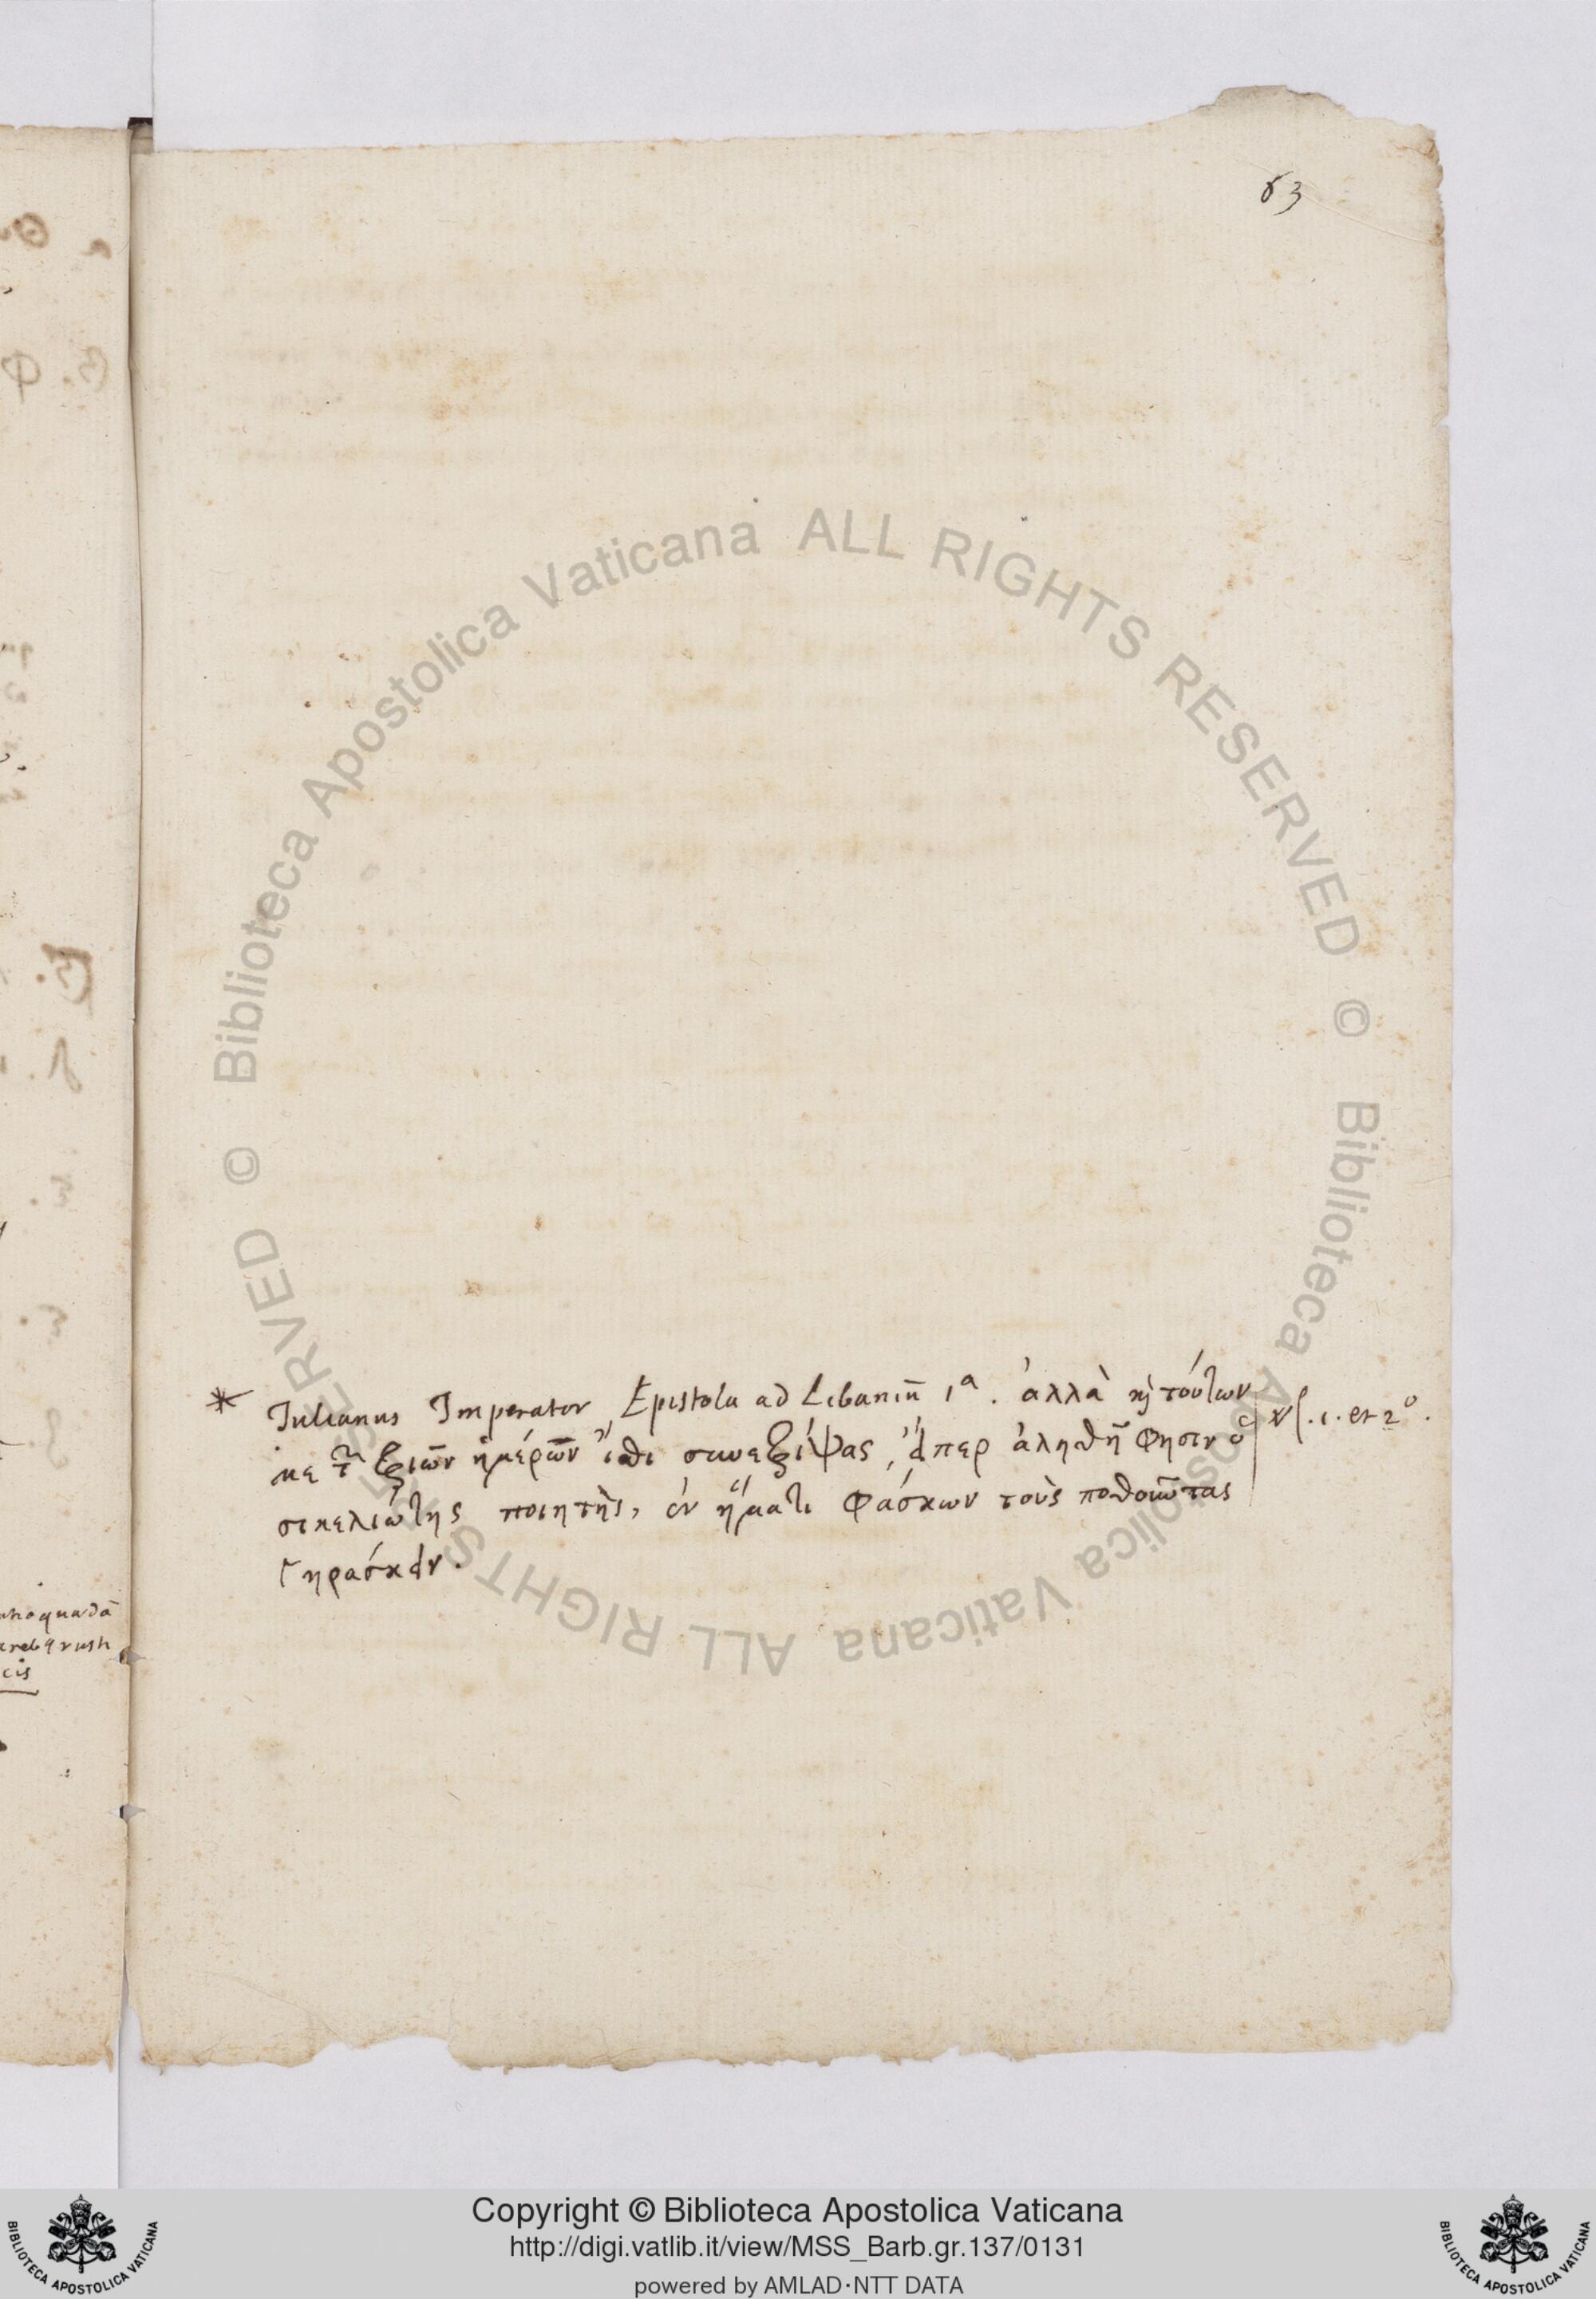 63
* Iulianus Imperator, Epistola ad Libaniũ 1ª. ἀλλὰ καὶ τούτων
με τῶν τριῶν ἡμερῶν ἴθι συνετρίψας, εἴπερ ἀληθῆ φησιν ὁ
σικελιώτης ποιητὴς, ἐν ἤματι φάσκων τοὺς ποθοῦντας
γηράσκειν.
.1. et 2º.
© Biblioteca Apostolica Vaticana ALL RIGHTS RESERVED
© Biblioteca Apostolica Vaticana ALL RIGHTS RESERVED
Copyright © Biblioteca Apostolica Vaticana
http://digi.vatlib.it/view/MSS_Barb.gr.137/0131
powered by AMLAD·NTT DATA
BIBLIOTECA APOSTOLICA VATICANA
BIBLIOTECA APOSTOLICA VATICANA